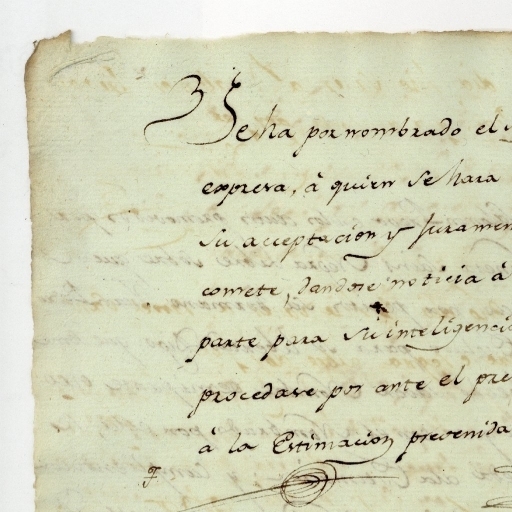 Se ha por nombrado el
expresa, â quien se hara
su acceptacion y Juramen
comete, dandose noticia â
parte para su inteligencia
procedase por ante el pre
â la Estimacion prevenida